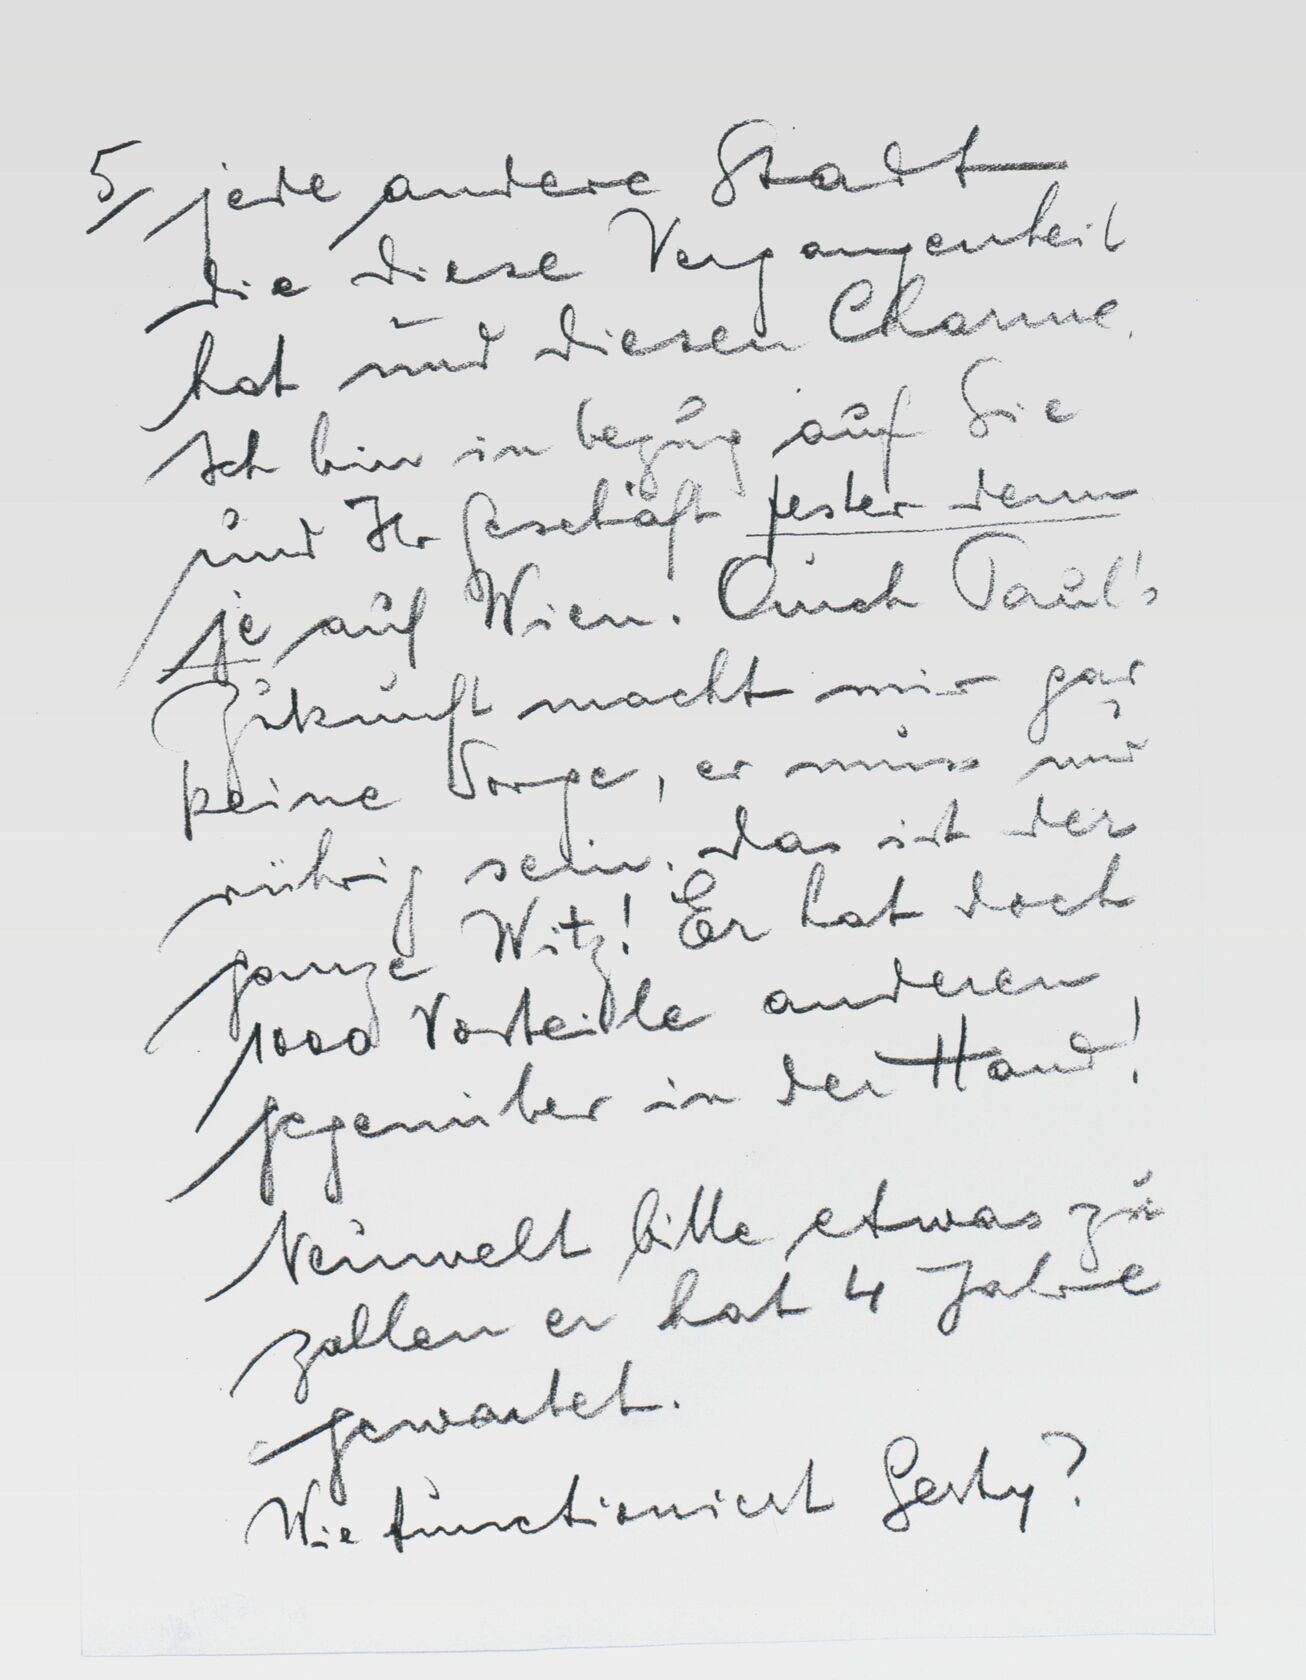 5/ jede andere Stadt
die diese Vergangenheit
hat und diesen Charme.
Ich bin in bezug auf Sie
und Ihr Geschäft fester denn
je auf Wien. Auch Paul's
Zukunft macht mir gar
keine Sorge, er muss nur
rührig sein. das ist der
ganze Witz! Er hat doch
1000 Vorteile anderen
gegenüber in der Hand!
Neuwelt bitte etwas zu
zallen er hat 4 Jahre
gewartet.
Wie functioniert Gerty?